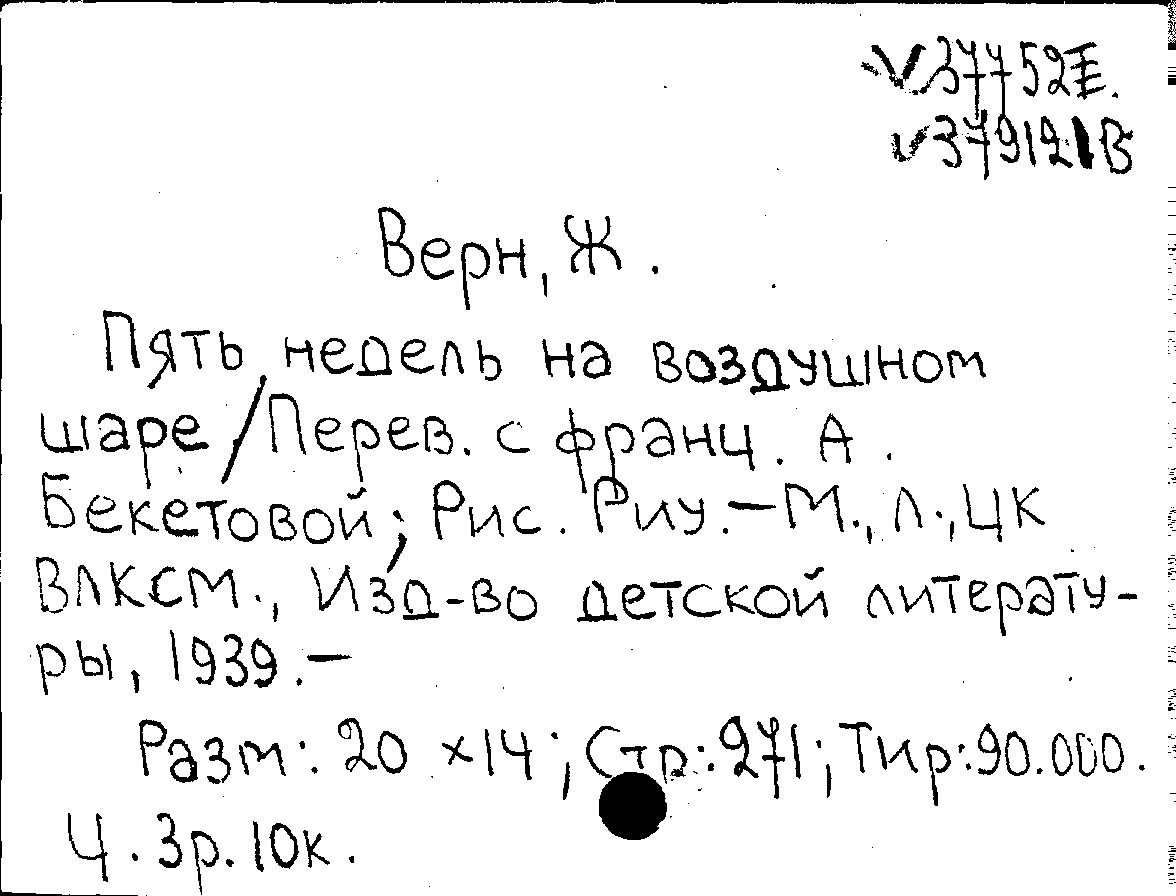 V37752E.
V379121B
Верн, Ж.
Пять недель на воздушном
шаре / Перев. с франц. А.
Бекетовой; Рис. Риу. – М., Л., ЦК
ВЛКСМ., Изд-во детской литерату-
ры, 1939. –
Разм: 20 x 14; Стр: 271; Тир: 90.000.
Ц. 3р. 10к.